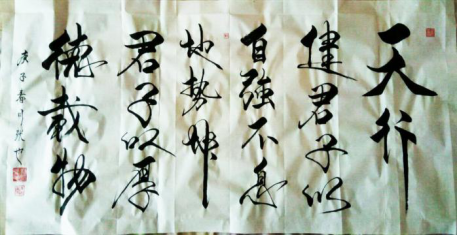 天行
健君子以
自强不息
地势坤
君子以厚
德载物
庚子春月